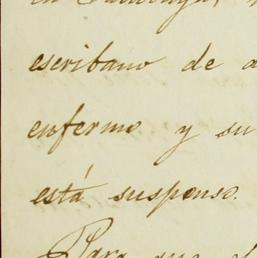 escribano de
enfermo y su
está suspenso.
Para que el